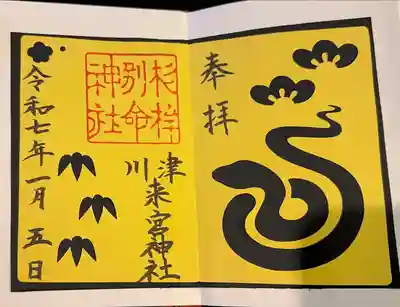 奉拝
川津
来宮神社
杉桙
別命
神社
令和七年一月五日